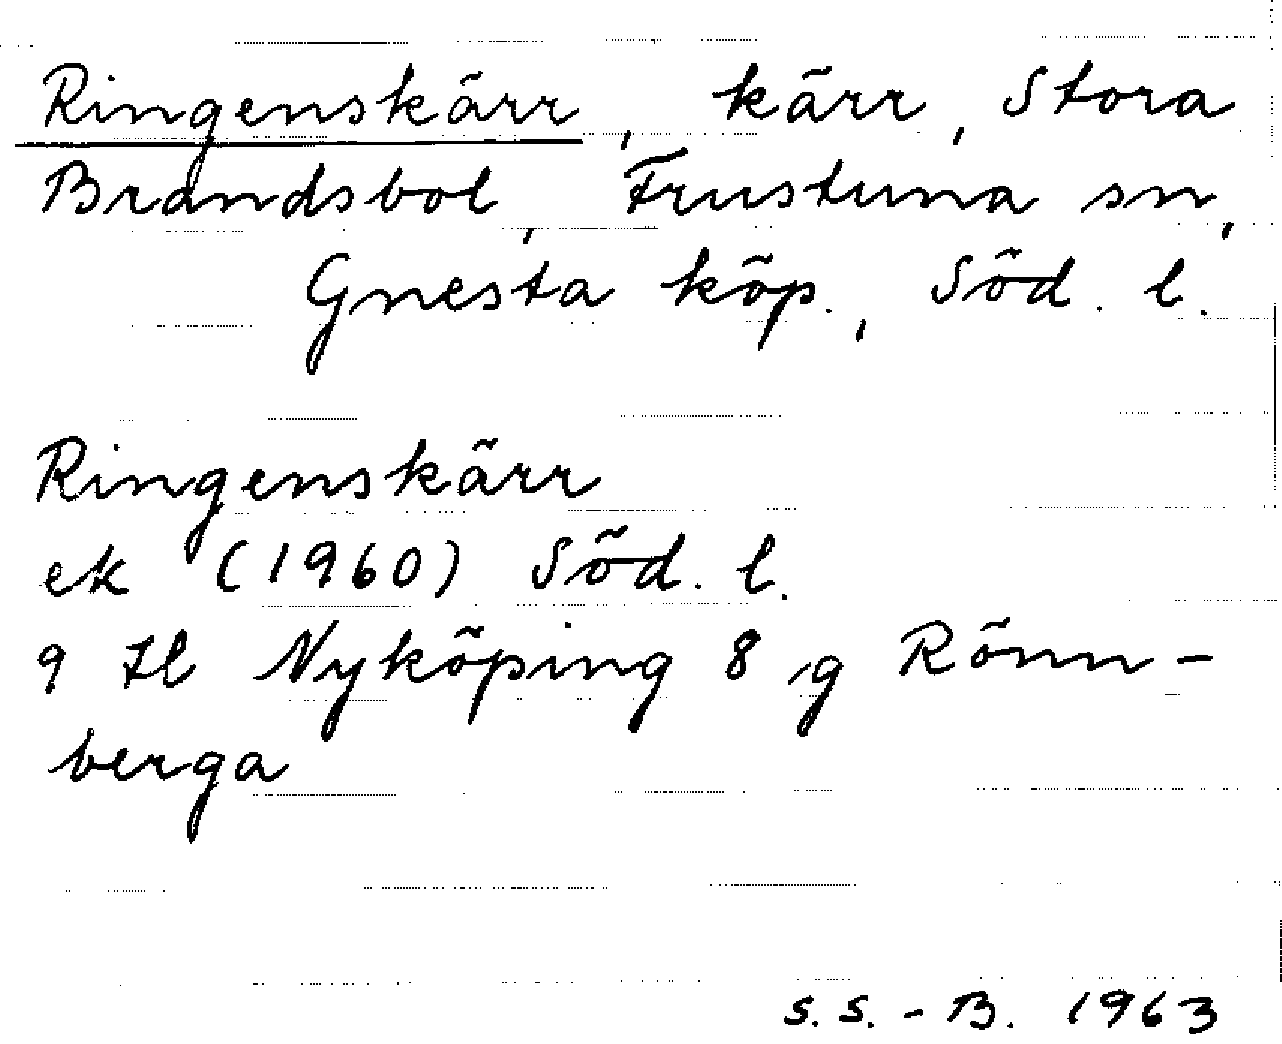 Ringenskärr, kärr, Stora
Brandsbol, Frustuna sn,
Gnesta köp., Söd. l.
Ringenskärr
ek (1960) Söd. l.
9 H Nyköping 8 g Rönn-
berga
S. S. - B. 1963